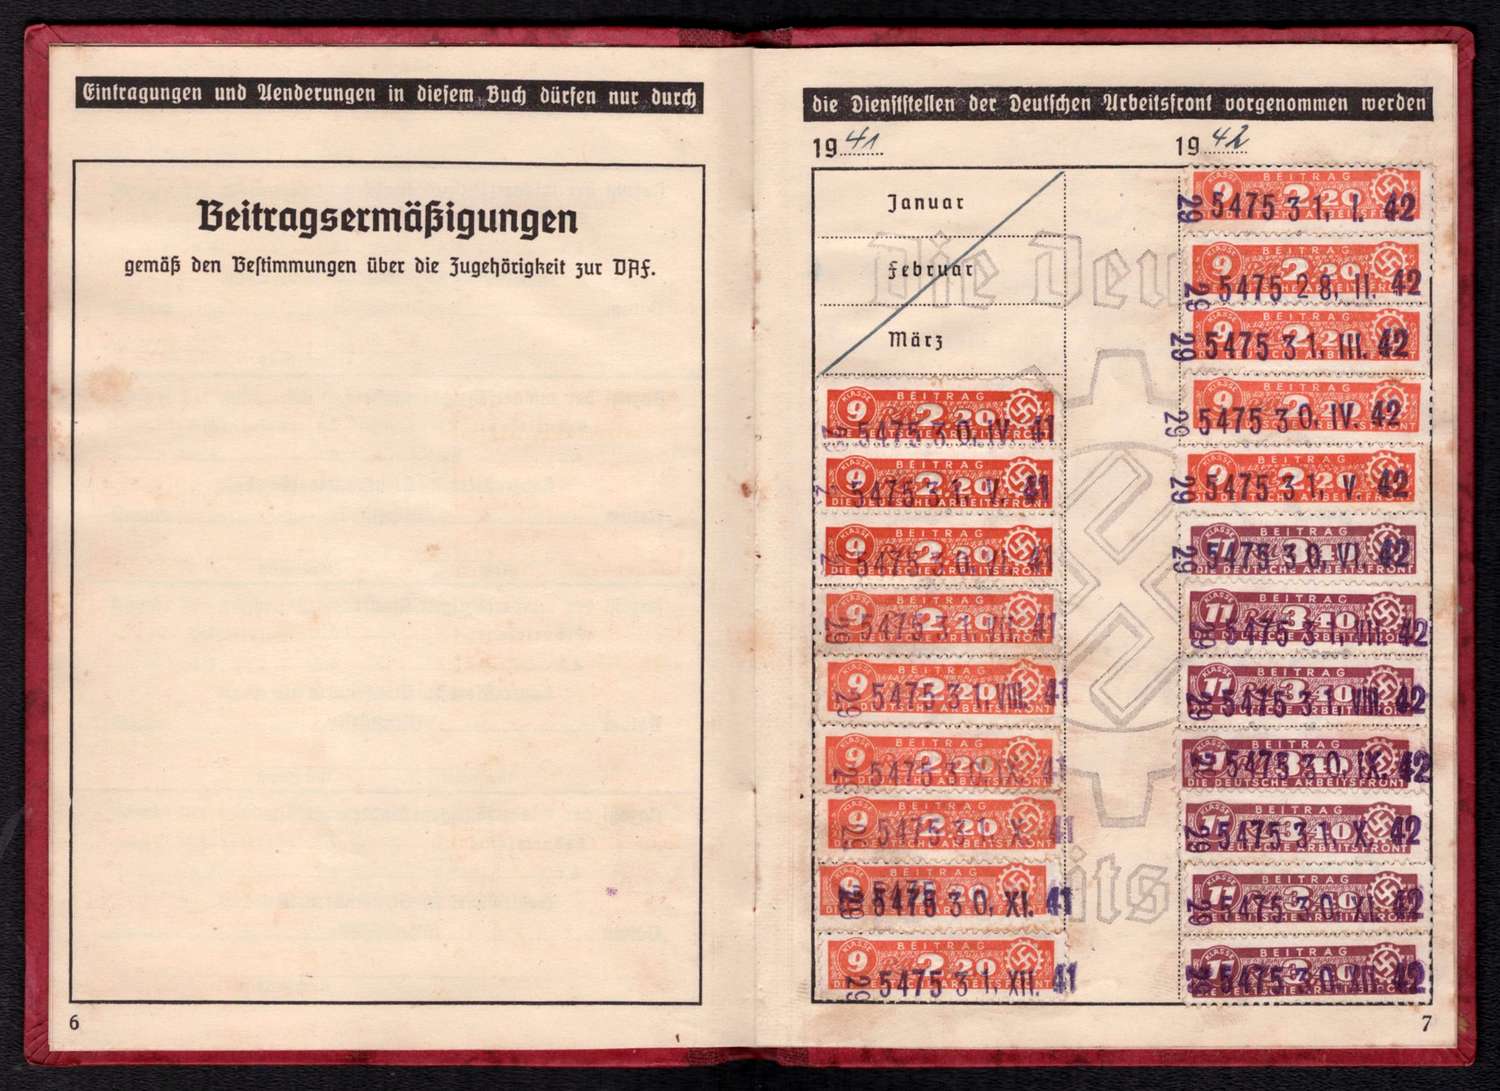 Eintragungen und Aenderungen in diesem Buch dürfen nur durch
Beitragsermäßigungen
gemäß den Bestimmungen über die Zugehörigkeit zur DAF.
6
die Dienststellen der Deutschen Arbeitsfront vorgenommen werden
19 41
Januar
Februar
März
KLASSE 9 BEITRAG 2.20
DIE DEUTSCHE ARBEITSFRONT
5475 30. IV. 41
KLASSE 9 BEITRAG 2.20
DIE DEUTSCHE ARBEITSFRONT
5475 31. V. 41
KLASSE 9 BEITRAG 2.20
DIE DEUTSCHE ARBEITSFRONT
5475 30. VI. 41
KLASSE 9 BEITRAG 2.20
DIE DEUTSCHE ARBEITSFRONT
29 5475 31. VII. 41
KLASSE 9 BEITRAG 2.20
DIE DEUTSCHE ARBEITSFRONT
29 5475 31. VIII. 41
KLASSE 9 BEITRAG 2.20
DIE DEUTSCHE ARBEITSFRONT
5475 30. IX. 41
KLASSE 9 BEITRAG 2.20
DIE DEUTSCHE ARBEITSFRONT
5475 31. X. 41
BEITRAG
DIE DEUTSCHE ARBEITSFRONT
29 5475 30. XI. 41
KLASSE 9 BEITRAG 2.20
DIE DEUTSCHE ARBEITSFRONT
29 5475 31. XII. 41
19 42
KLASSE 9 BEITRAG 2.20
DIE DEUTSCHE ARBEITSFRONT
29 5475 31. I. 42
KLASSE 9 BEITRAG 2.20
DIE DEUTSCHE ARBEITSFRONT
29 5475 28. II. 42
KLASSE 9 BEITRAG 2.20
DIE DEUTSCHE ARBEITSFRONT
29 5475 31. III. 42
KLASSE 9 BEITRAG 2.20
DIE DEUTSCHE ARBEITSFRONT
29 5475 30. IV. 42
KLASSE 9 BEITRAG 2.20
DIE DEUTSCHE ARBEITSFRONT
29 5475 31. V. 42
KLASSE 11 BEITRAG 3.40
DIE DEUTSCHE ARBEITSFRONT
29 5475 30. VI. 42
KLASSE 11 BEITRAG 3.40
DIE DEUTSCHE ARBEITSFRONT
29 5475 31. VII. 42
KLASSE 11 BEITRAG 3.40
DIE DEUTSCHE ARBEITSFRONT
29 5475 31. VIII. 42
BEITRAG 3.40
DIE DEUTSCHE ARBEITSFRONT
5475 30. IX. 42
KLASSE 11 BEITRAG 3.40
DIE DEUTSCHE ARBEITSFRONT
29 5475 31. X. 42
KLASSE 11 BEITRAG 3.40
DIE DEUTSCHE ARBEITSFRONT
29 5475 30. XI. 42
KLASSE 11 BEITRAG 3.40
DIE DEUTSCHE ARBEITSFRONT
29 5475 30. XII. 42
Die Deu
its
7